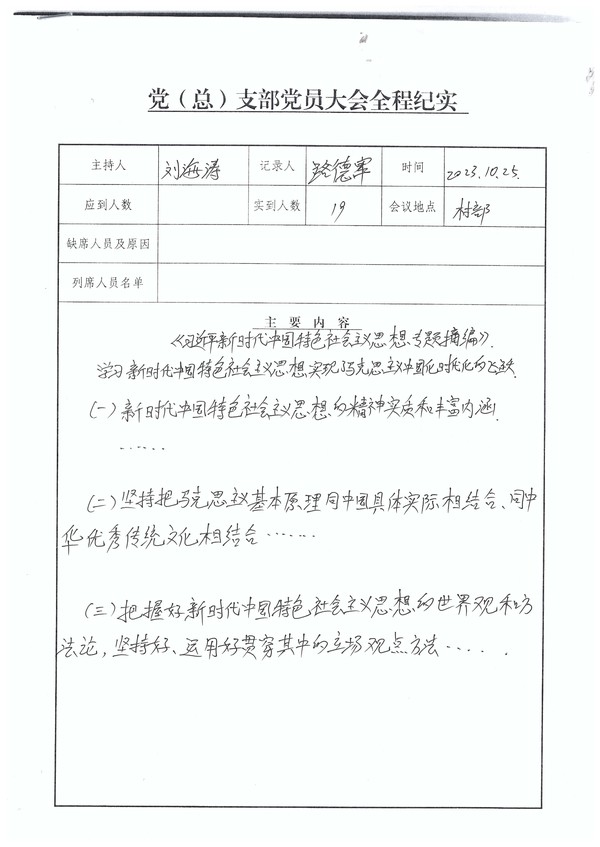 党（总）支部党员大会全程纪实
主持人 刘海涛 记录人 路德军 时间 2023.10.25.
应到人数 实到人数 19 会议地点 村部
缺席人员及原因
列席人员名单
主要内容
《习近平新时代中国特色社会主义思想专题摘编》.
学习新时代中国特色社会主义思想实现马克思主义中国化时代化的飞跃.
(一)新时代中国特色社会主义思想的精神实质和丰富内涵.
……
(二)坚持把马克思主义基本原理同中国具体实际相结合、同中
华优秀传统文化相结合……
(三)把握好新时代中国特色社会主义思想的世界观和方
法论,坚持好、运用好贯穿其中的立场观点方法……